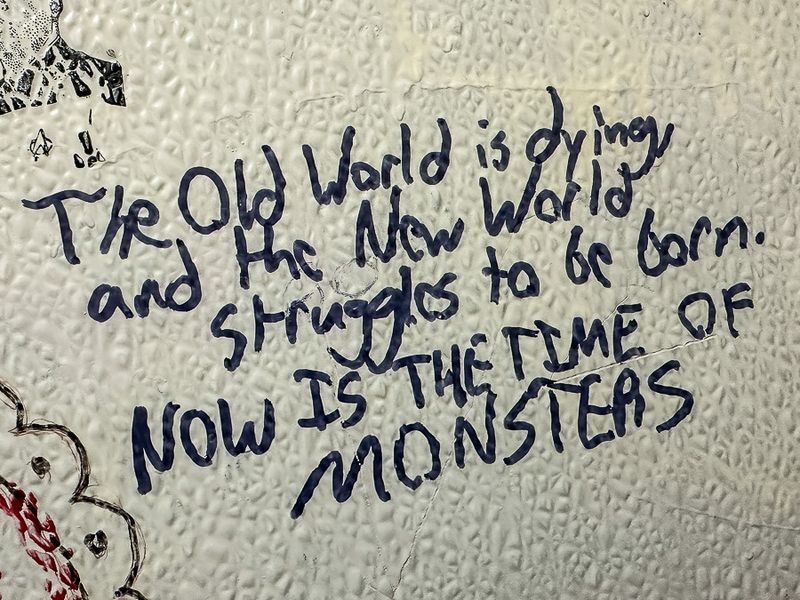 The Old World is dying
and the New World
struggles to be born.
NOW IS THE TIME OF
MONSTERS